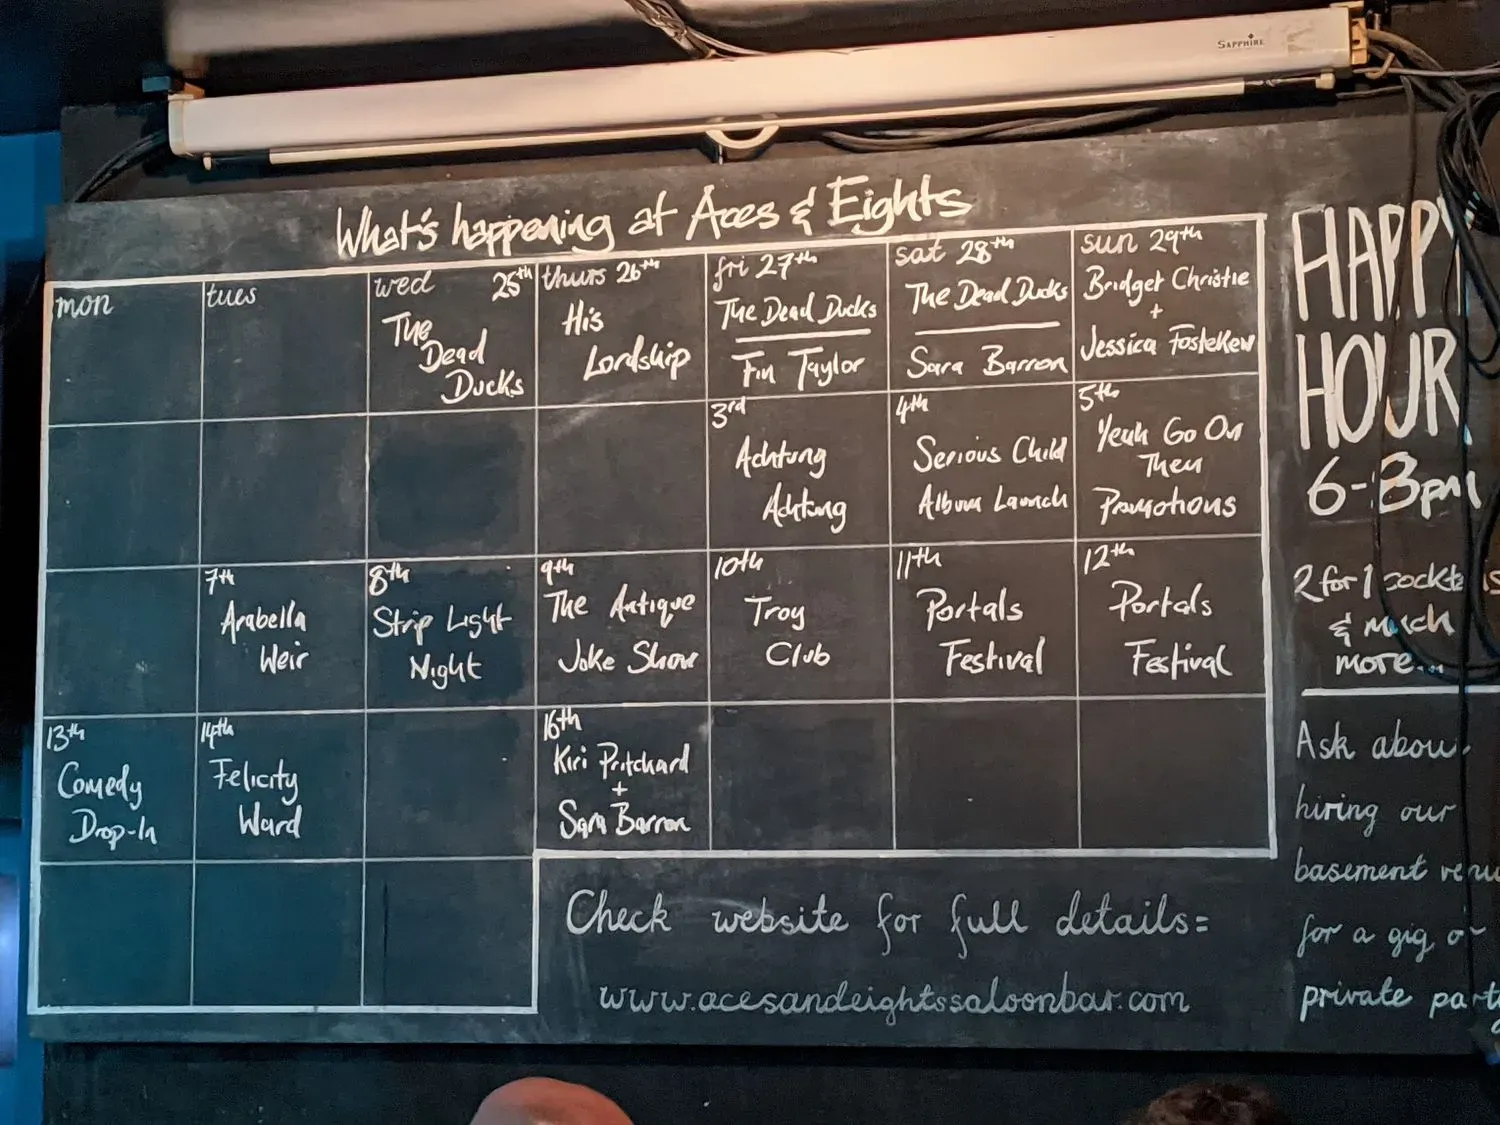 SAPPHIRE
What's happening at Aces & Eights
mon
tues
wed 25th
The
Dead
Ducks
thurs 26th
His
Lordship
fri 27th
The Dead Ducks
Fin Taylor
sat 28th
The Dead Ducks
Sara Barron
sun 29th
Bridget Christie
+
Jessica Fostekew
3rd
Achtung
Achtung
4th
Serious Child
Album Launch
5th
Yeah Go On
Then
Promotions
7th
Arabella
Weir
8th
Strip Light
Night
9th
The Antique
Joke Show
10th
Troy
Club
11th
Portals
Festival
12th
Portals
Festival
13th
Comedy
Drop-In
14th
Felicity
Ward
16th
Kiri Pritchard
+
Sara Barron
Check website for full details:
www.acesandeightssaloonbar.com
HAPPY
HOUR
6-8pm
2 for 1
& much
more...
Ask about
hiring our
basement
for a gig or
private party